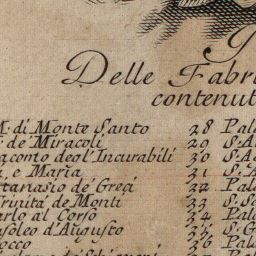 Delle Fabri
contenut
M. di Monte Santo 28 Pala
de Miracoli 29 S. A
acomo degl' Incurabili 30 S. A
e Maria 31
tanasio de Greci 32 Pala
Trinita de Monti 33 S. S
arlo al Corso 34 Pala
soleo d'Augusto 35 S. G
occo 36 Pala